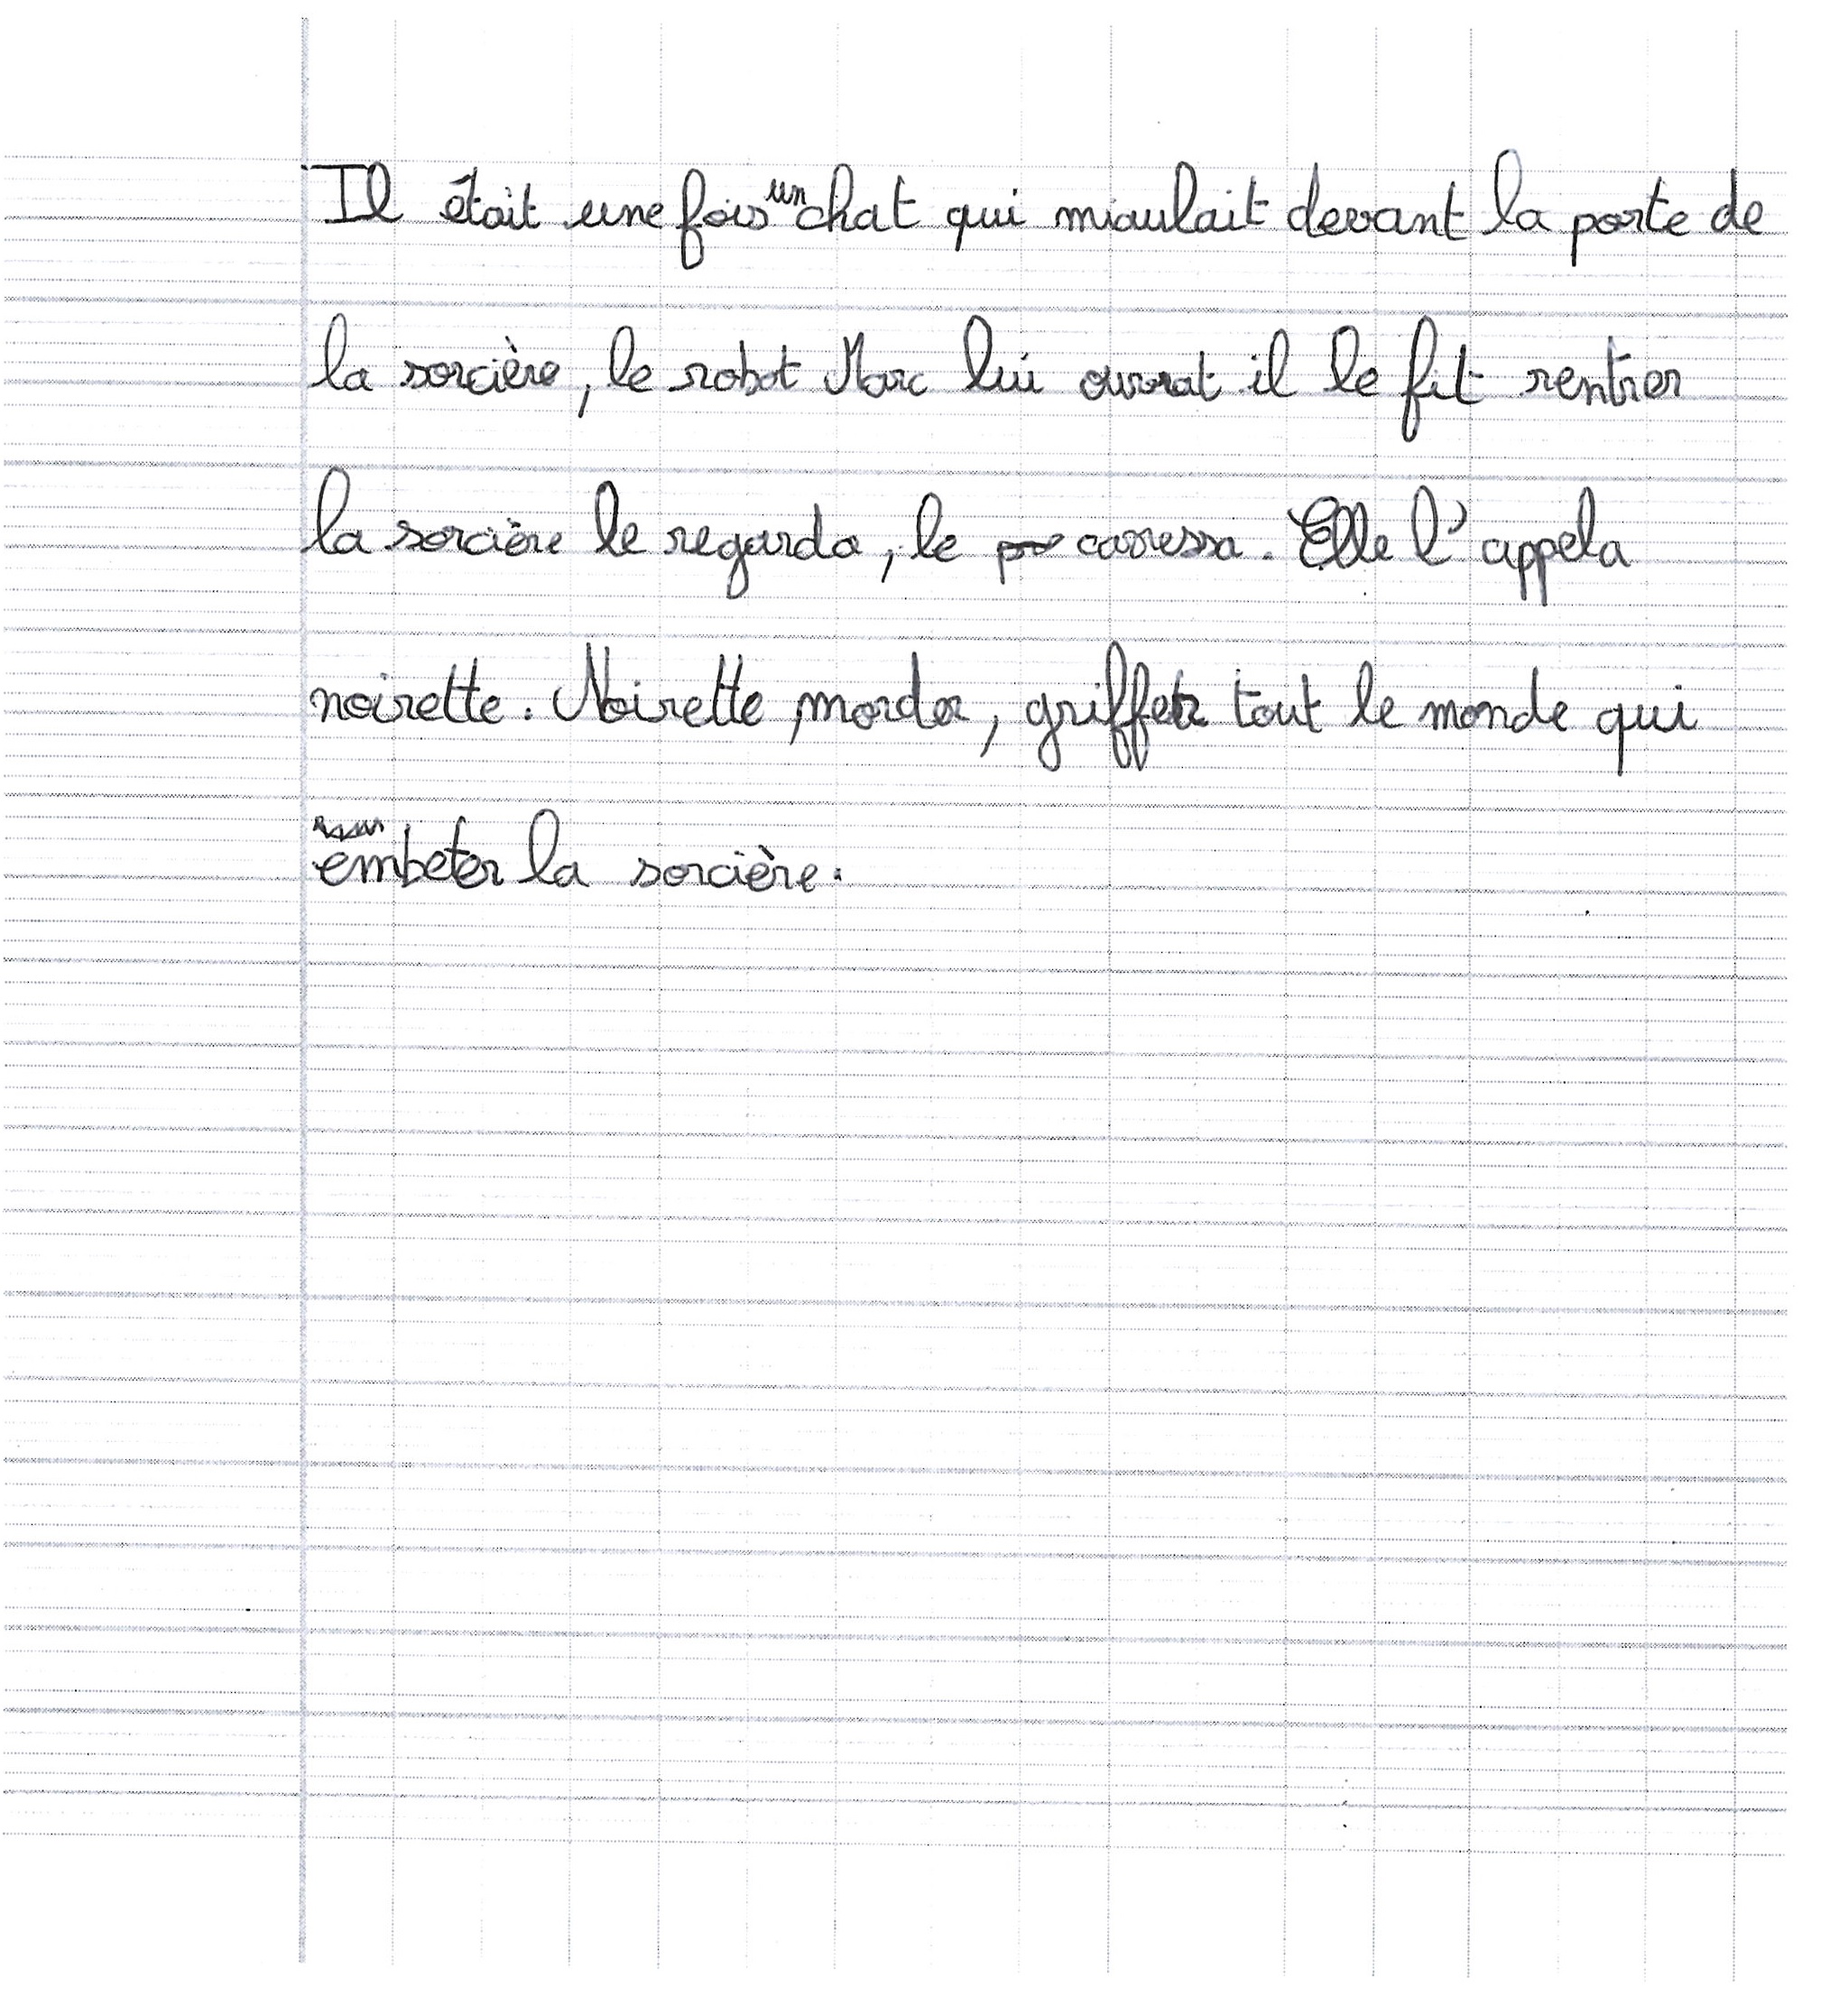 Il était une fois un chat qui miaulait devant la porte de
la sorcière, le robot Marc lui ouvrat il le fit rentrer
la sorcière le regarda, le caressa. Elle l'appela
noirette. Noirette, morder, griffer tout le monde qui
embeter la sorcière.